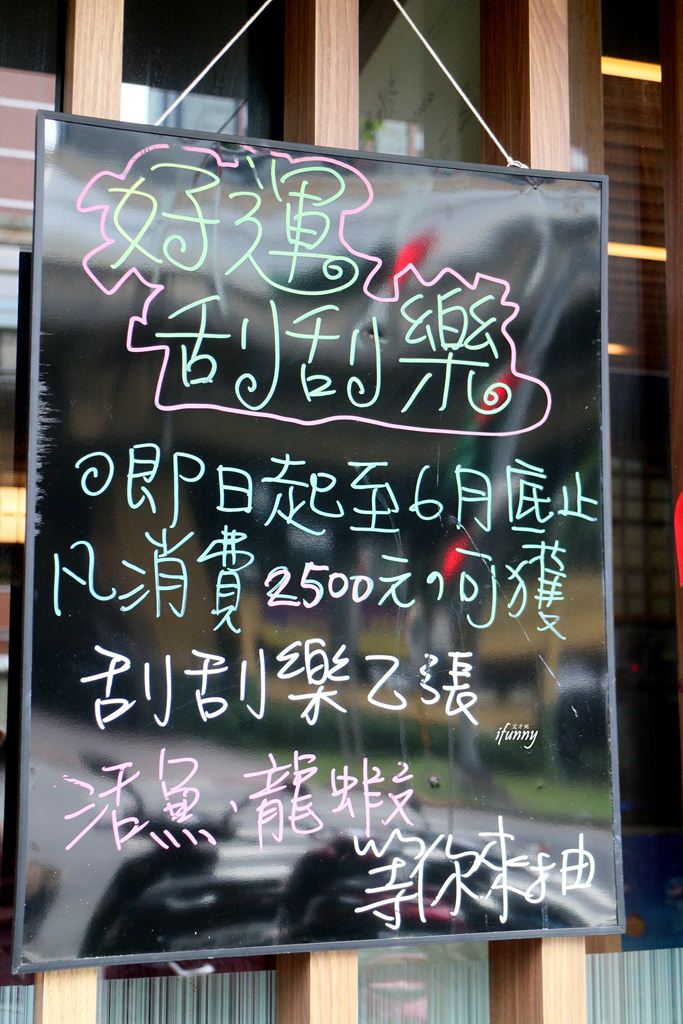 好運
刮刮樂
即日起至6月底止
凡消費2500元,可獲
刮刮樂乙張
艾方妮
ifunny
活魚、龍蝦
等你來抽